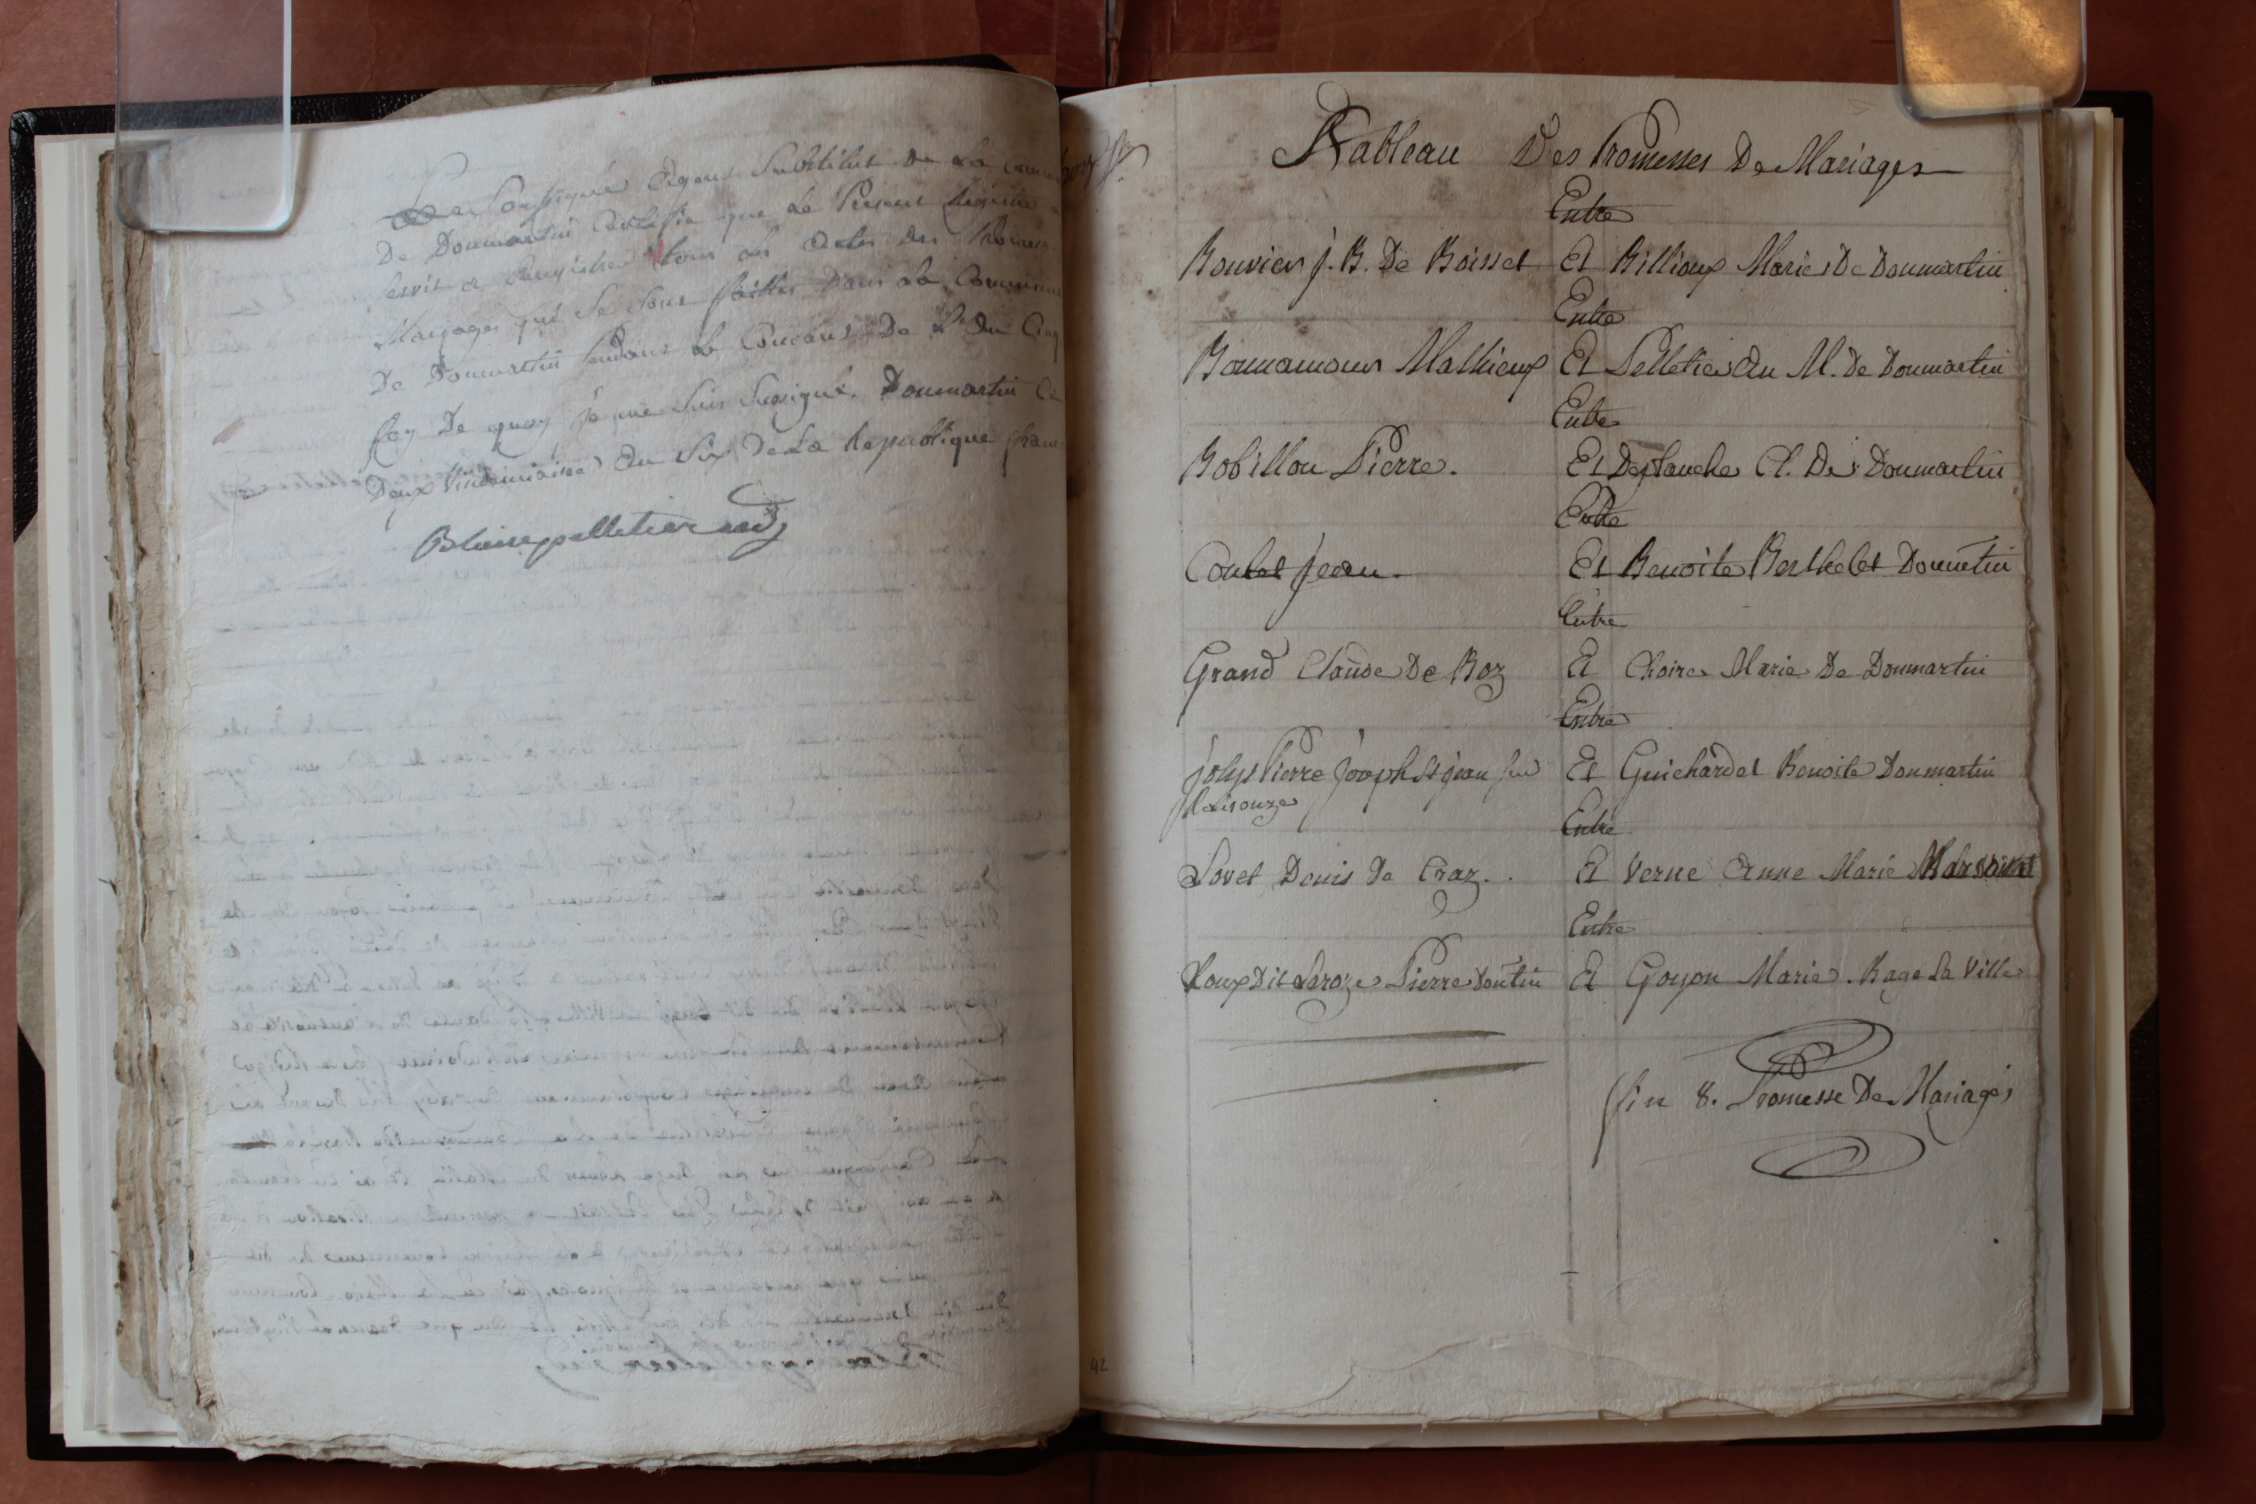 Le Soussigné Agent Substitut De La
De Dommartin Certifie que Le Present Registre
servit a Enregistrer tous les actes des
Mariages qui Se Sont faittes Dans La Commune
De Dommartin pendant Le Courant De L'An Cinq
foy De quoy je me Suis Susigné. Dommartin Ce
Deux Vindemiaire An Six De La Republique
pelletier
Tableau Des Promesses De Mariages
Entre
Bouvier J. B. De Boissel Et Billioux Marie De Doumartin
Entre
Bonnamour Mathieux Et Pelletier An M. De Doumartin
Entre
Robillou Pierre. Et Desplanche Cl. De Doumartin
Entre
Coulet Jean. Et Benoite Berthelet Doumtin
Entre
Grand Claude De Boz Et Choire Marie De Doumartin
Entre
Jolys Pierre Joseph St Jean sur Et Guichardet Benoite Doumartin
Raisouze
Entre
Lovet Denis De Craz.. Et Verne Anne Marie
Entre
Roux Dit Laroze Pierre Domtin Et Goyon Marie. Bage La Ville
fin 8. Promesse De Mariages
42